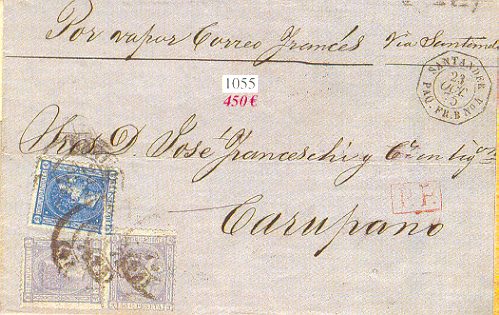 Por vapor Correo Francés Via Santand
1055
450€
SANTANDER
23
OCT
75
PAQ. FR. B No 4
Sres. D. José Franceschi y Ca en liq
P.F.
Carupano